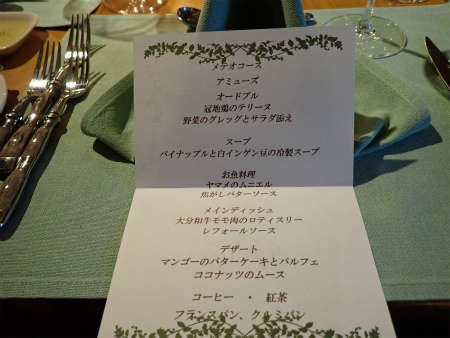 メテオコース
アミューズ
オードブル
冠地鶏のテリーヌ
野菜のグレッグとサラダ添え
スープ
パイナップルと白インゲン豆の冷製スープ
お魚料理
ヤマメのムニエル
焦がしバターソース
メインディッシュ
大分和牛モモ肉のロティスリー
レフォールソース
デザート
マンゴーのバターケーキとパルフェ
ココナッツのムース
コーヒー ・ 紅茶
フランスパン、クルミパン